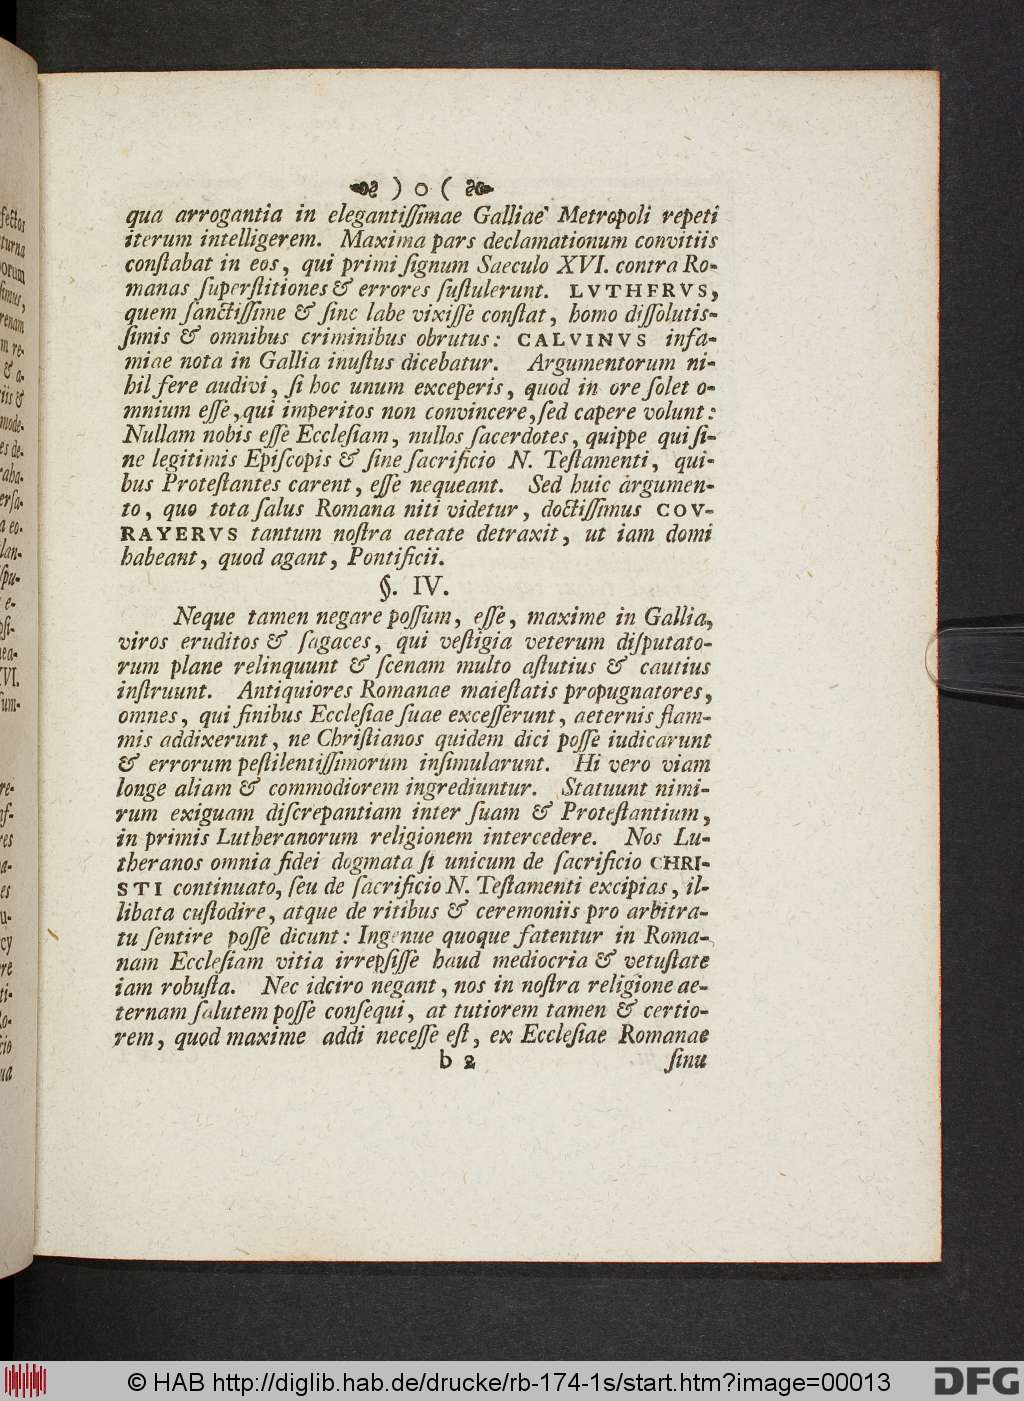 ) o (
qua arrogantia in elegantiſſimae Galliae Metropoli repeti
iterum intelligerem. Maxima pars declamationum convitiis
conſtabat in eos, qui primi ſignum Saeculo XVI. contra Ro-
manas ſuperſtitiones & errores ſuſtulerunt. LVTHERVS,
quem ſanctiſſime & ſine labe vixiſſe conſtat, homo diſſolutis-
ſimis & omnibus criminibus obrutus: CALVINVS infa-
miae nota in Gallia inuſtus dicebatur. Argumentorum ni-
hil fere audivi, ſi hoc unum exceperis, quod in ore ſolet o-
mnium eſſe, qui imperitos non convincere, ſed capere volunt:
Nullam nobis eſſe Eccleſiam, nullos ſacerdotes, quippe qui ſi-
ne legitimis Epiſcopis & ſine ſacrificio N. Teſtamenti, qui-
bus Proteſtantes carent, eſſe nequeant. Sed huic argumen-
to, quo tota ſalus Romana niti videtur, doctiſſimus COV-
RAYERVS tantum noſtra aetate detraxit, ut iam domi
habeant, quod agant, Pontificii.
§. IV.
Neque tamen negare poſſum, eſſe, maxime in Gallia,
viros eruditos & ſagaces, qui veſtigia veterum diſputato-
rum plane relinquunt & ſcenam multo aſtutius & cautius
inſtruunt. Antiquiores Romanae maieſtatis propugnatores,
omnes, qui finibus Eccleſiae ſuae exceſſerunt, aeternis flam-
mis addixerunt, ne Chriſtianos quidem dici poſſe iudicarunt
& errorum peſtilentiſſimorum inſimularunt. Hi vero viam
longe aliam & commodiorem ingrediuntur. Statuunt nimi-
rum exiguam diſcrepantiam inter ſuam & Proteſtantium,
in primis Lutheranorum religionem intercedere. Nos Lu-
theranos omnia fidei dogmata ſi unicum de ſacrificio CHRI-
STI continuato, ſeu de ſacrificio N. Teſtamenti excipias, il-
libata cuſtodire, atque de ritibus & ceremoniis pro arbitra-
tu ſentire poſſe dicunt: Ingenue quoque fatentur in Roma-
nam Eccleſiam vitia irrepſiſſe haud mediocria & vetuſtate
iam robuſta. Nec idciro negant, nos in noſtra religione ae-
ternam ſalutem poſſe conſequi, at tutiorem tamen & certio-
rem, quod maxime addi neceſſe eſt, ex Eccleſiae Romanae
b 2 ſinu
© HAB http://diglib.hab.de/drucke/rb-174-1s/start.htm?image=00013
DFG